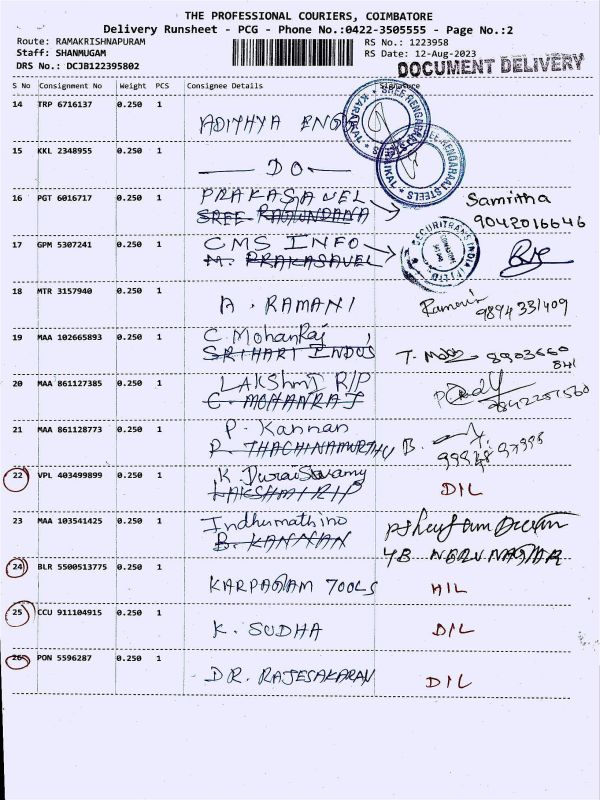 THE PROFESSIONAL COURIERS, COIMBATORE
Delivery Runsheet - PCG - Phone No.:0422-3505555 - Page No.:2
Route: RAMAKRISHNAPURAM RS No.: 1223958
Staff: SHANMUGAM RS Date: 12-Aug-2023
DRS No.: DCJB122395802 DOCUMENT DELIVERY
S No Consignment No Weight PCS Consignee Details Signature
14 TRP 6716137 0.250 1 ADITHYA ENGG
15 KKL 2348955 0.250 1 DO
SREE RENGARAAJ STEELS KARAIKAL
16 PGT 6016717 0.250 1 PRAKASAVEL Samritha
9042016646
17 GPM 5307241 0.250 1 CMS INFO
M. PRAKASAVEL
18 MTR 3157940 0.250 1 A. RAMANI Ramani
9894331409
19 MAA 102665893 0.250 1 C. Mohanraj
SRIHARI INDUS 8903660
841
20 MAA 861127385 0.250 1 LAKSHMI R/P
C. MOHANRAJ
21 MAA 861128773 0.250 1 P. Kannan
22 VPL 403499899 0.250 1 K. Duraiswamy
LAKSHMI RIP D/L
23 MAA 103541425 0.250 1 Indhumathi
B. KANNAN 4B NERU NAGAR
24 BLR 5500513775 0.250 1 KARPAGAM TOOLS
25 CCU 911104915 0.250 1 K. SUDHA D/L
26 PON 5596287 0.250 1 DR. RAJESAKARAN D/L